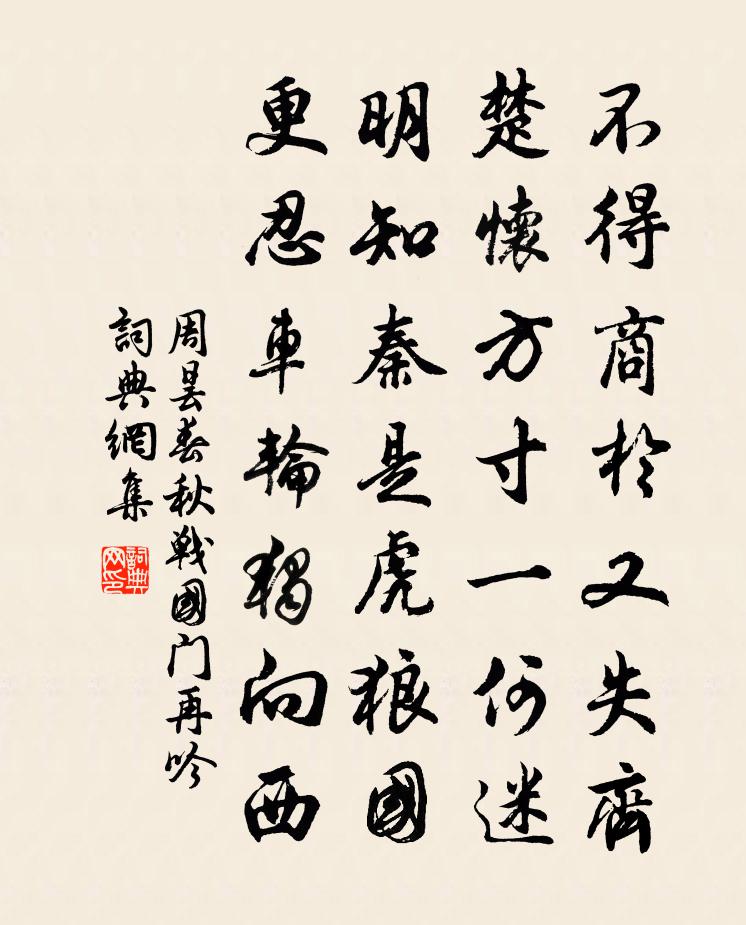 不得商於又失齊
楚懷方寸一何迷
明知秦是虎狼國
更忍車輪獨向西
周曇春秋戰國門再吟
詞典網集
詞典网印